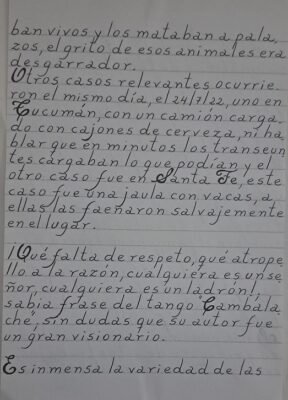 ban vivos y los mataban a pala
zos, el grito de esos animales era
desgarrador.
Otros casos relevantes ocurrie
ron el mismo día, el 24/7/22, uno en
Tucumán, con un camión carga
do con cajones de cerveza, ni ha
blar que en minutos los transeun
tes cargaban lo que podían y el
otro caso fue en Santa Fe, este
caso fue una jaula con vacas, a
ellas las faenaron salvajemente
en el lugar.
¡Qué falta de respeto, qué atrope
llo a la razón, cualquiera es un se
ñor, cualquiera es un ladrón!,
sabia frase del tango "Cambala
che", sin dudas que su autor fue
un gran visionario.
Es inmensa la variedad de las